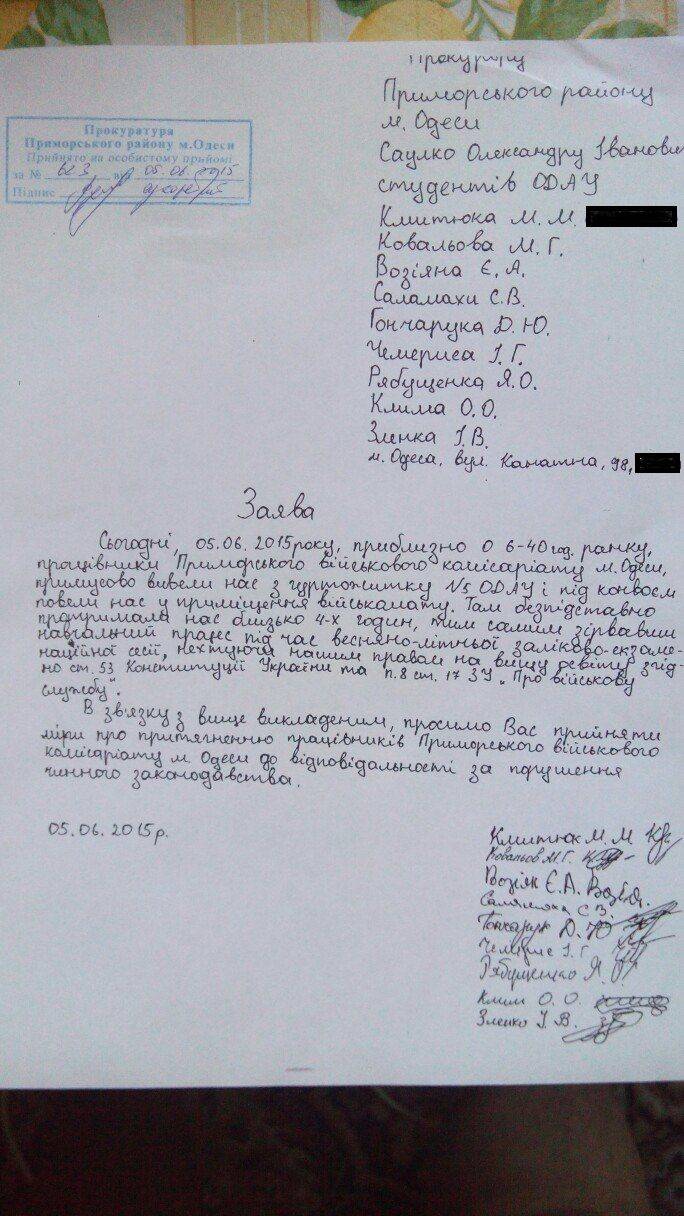 Прокурору
Приморського району
м. Одеси
Саулко Олександру Іванович
студентів ОДАУ
Кмитюка М. М.
Ковальова М. Г.
Возіяна Є. А.
Саламахи С. В.
Гончарука Д. Ю.
Чемериса І. Г.
Рябущенка Я. О.
Клима О. О.
Зленка І. В.
м. Одеса, вул. Канатна, 98,
Прокуратура
Приморського району м.Одеси
Прийнято на особистому прийомі
за № 623 від 05.06.2015
Підпис
Заява
Сьогодні, 05.06.2015 року, приблизно о 6-40 год. ранку,
працівники Приморського військового комісаріату м. Одеси,
примусово вивели нас з гуртожитку №5 ОДАУ і під конвоєм
повели нас у приміщення військомату. Там безпідставно
протримали нас близько 4-х годин, тим самим зірвавши
навчальний процес під час весняно-літньої заліково-екзаме-
наційної сесії, нехтуючи нашим правам на вищу освіту згід-
но ст. 53 Конституції України та п.8 ст. 17 ЗУ „Про військову
службу".
В зв'язку з вище викладеним, просимо Вас прийняти
міри про притягненню працівників Приморського військового
комісаріату м. Одеси до відповідальності за порушення
чинного законодавства.
05.06.2015р.
Кмитюк М. М
Ковальов М. Г.
Возіян Є. А. Возіян
Саламаха С. В.
Гончарук Д. Ю
Чемерис І. Г
Рябущенко Я.
Клим О. О.
Зленко І. В.